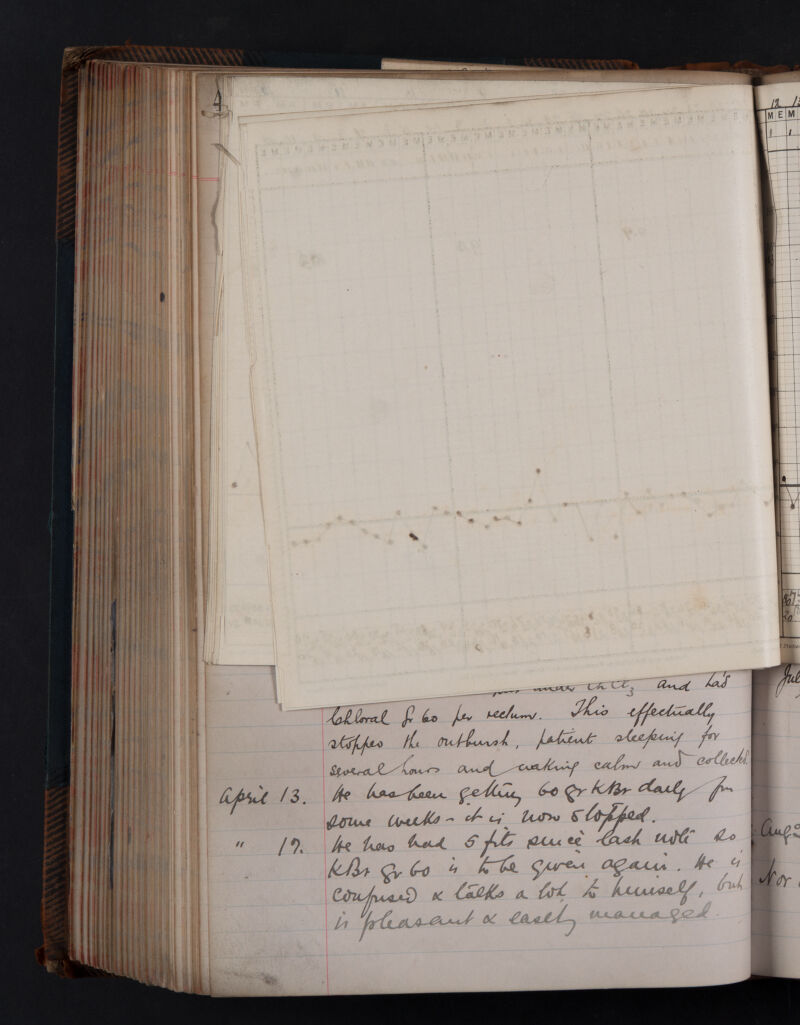 4
under CHCl3 and had
Chloral gr 60 per rectum. This effectually
stopped the outburst, patient sleeping for
several hours and waking calm and collected.
April 13. He has been getting 60 gr KBr daily for
some weeks - it is now stopped.
" 17. He has had 5 fits since last note so
KBr gr 60 is to be given again. He is
confused & talks a lot to himself, but
is pleasant & easily managed.
12 13
M E M
1 1
Jul
Aug
Nov